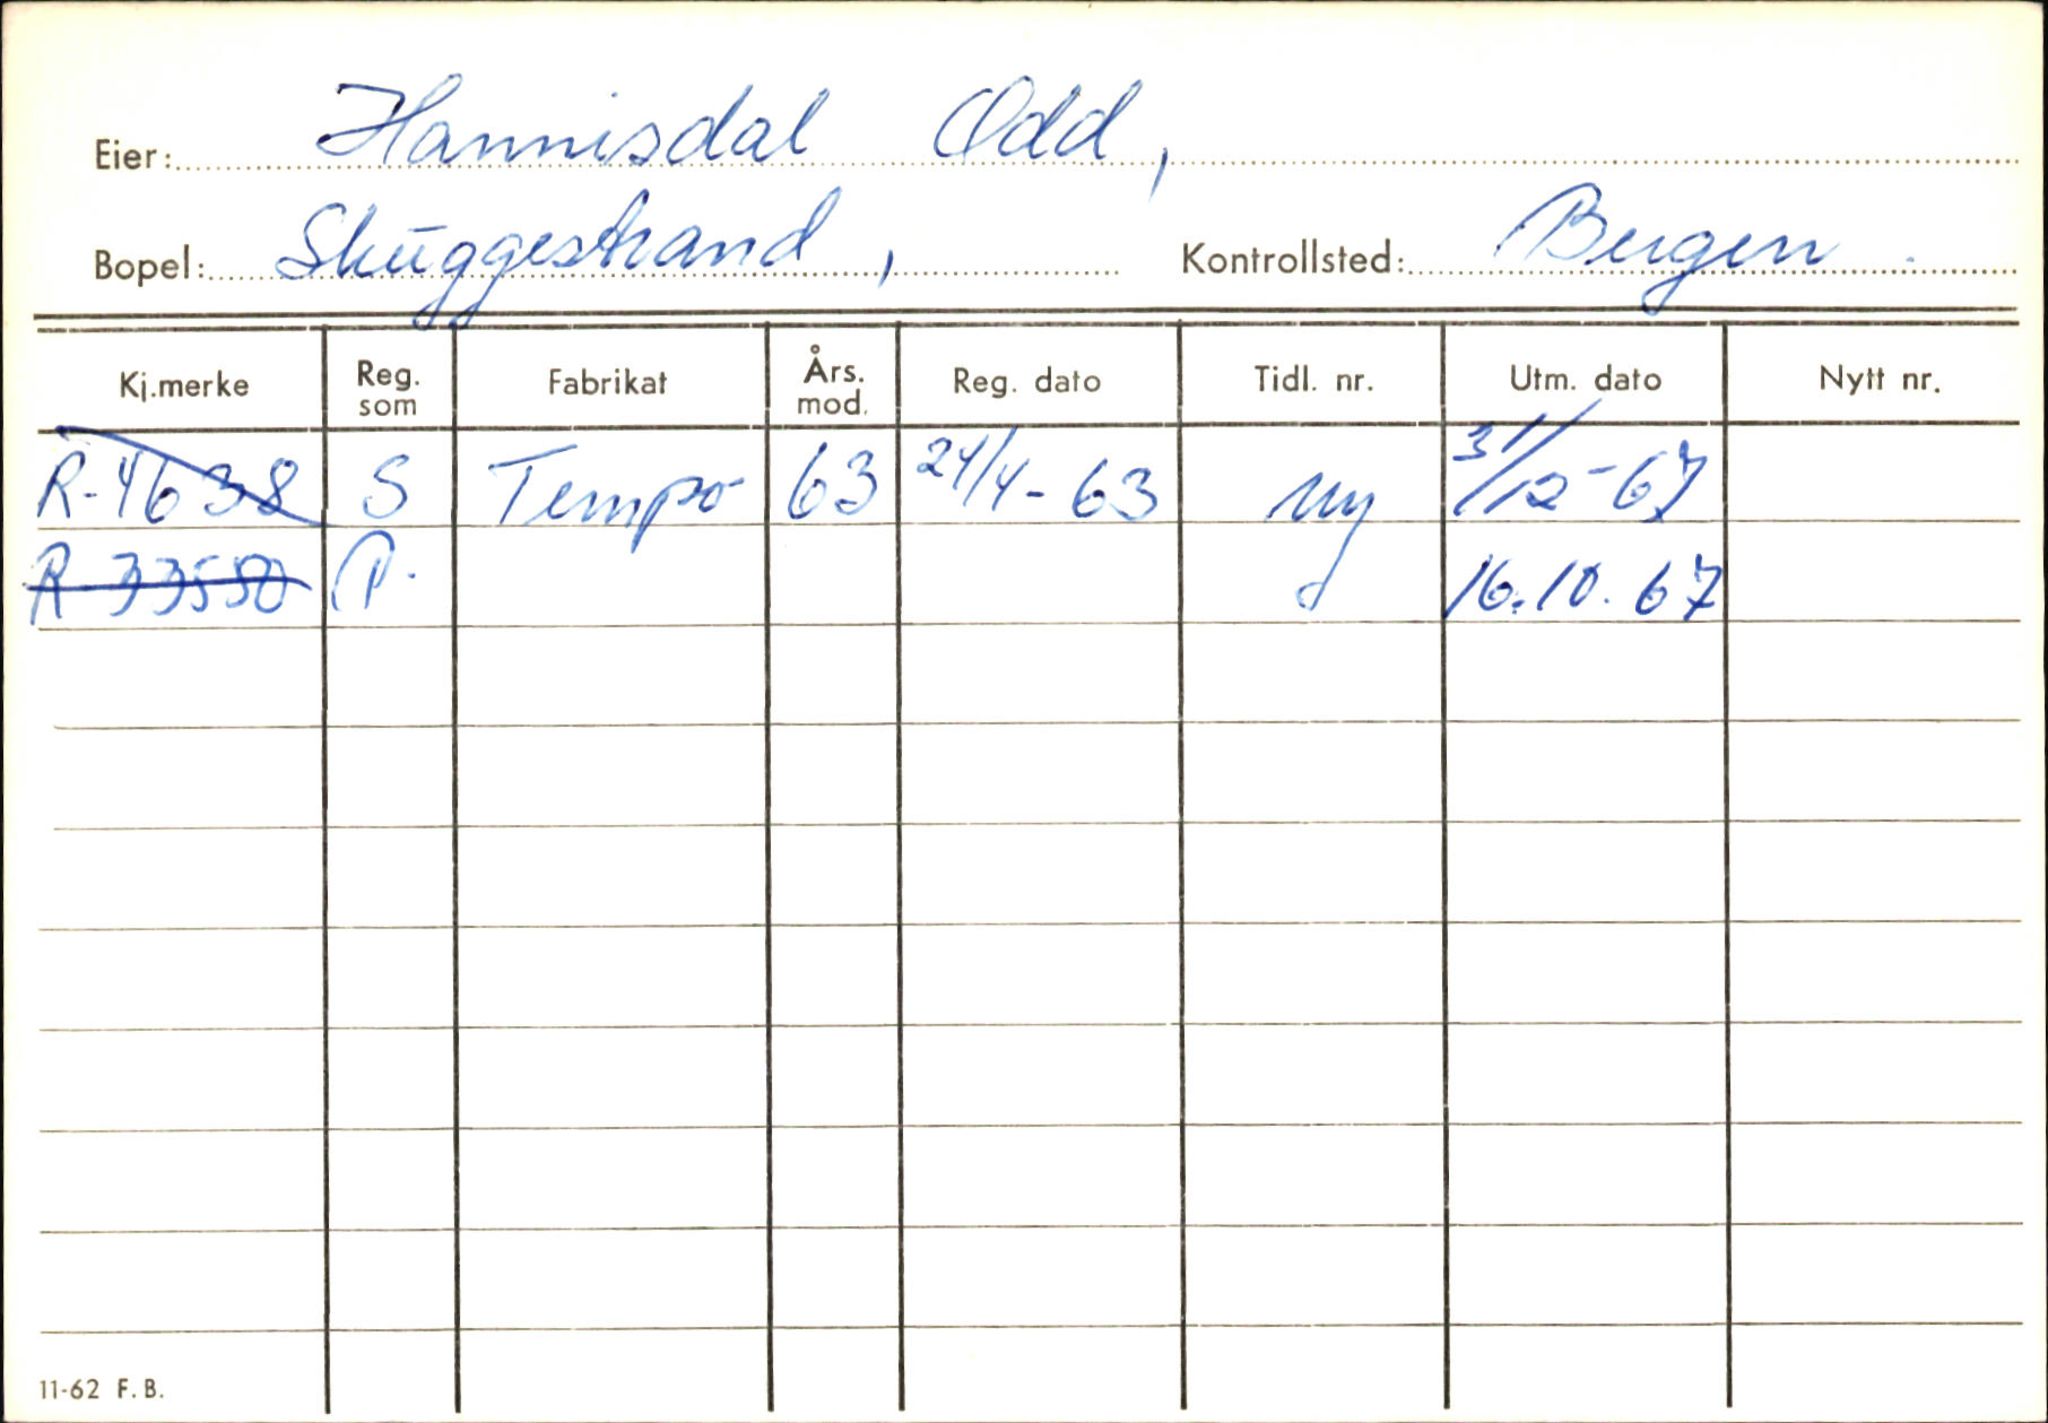 Eier: Hannisdal Odd,
Bopel: Skuggestrand, Kontrollsted: Bergen.
Kj.merke Reg. som Fabrikat Års. mod. Reg. dato Tidl. nr. Utm. dato Nytt nr.
R-4638 S Tempo 63 24/4-63 ny 31/12-67
R 33550 P. 16.10.67
11-62 F.B.